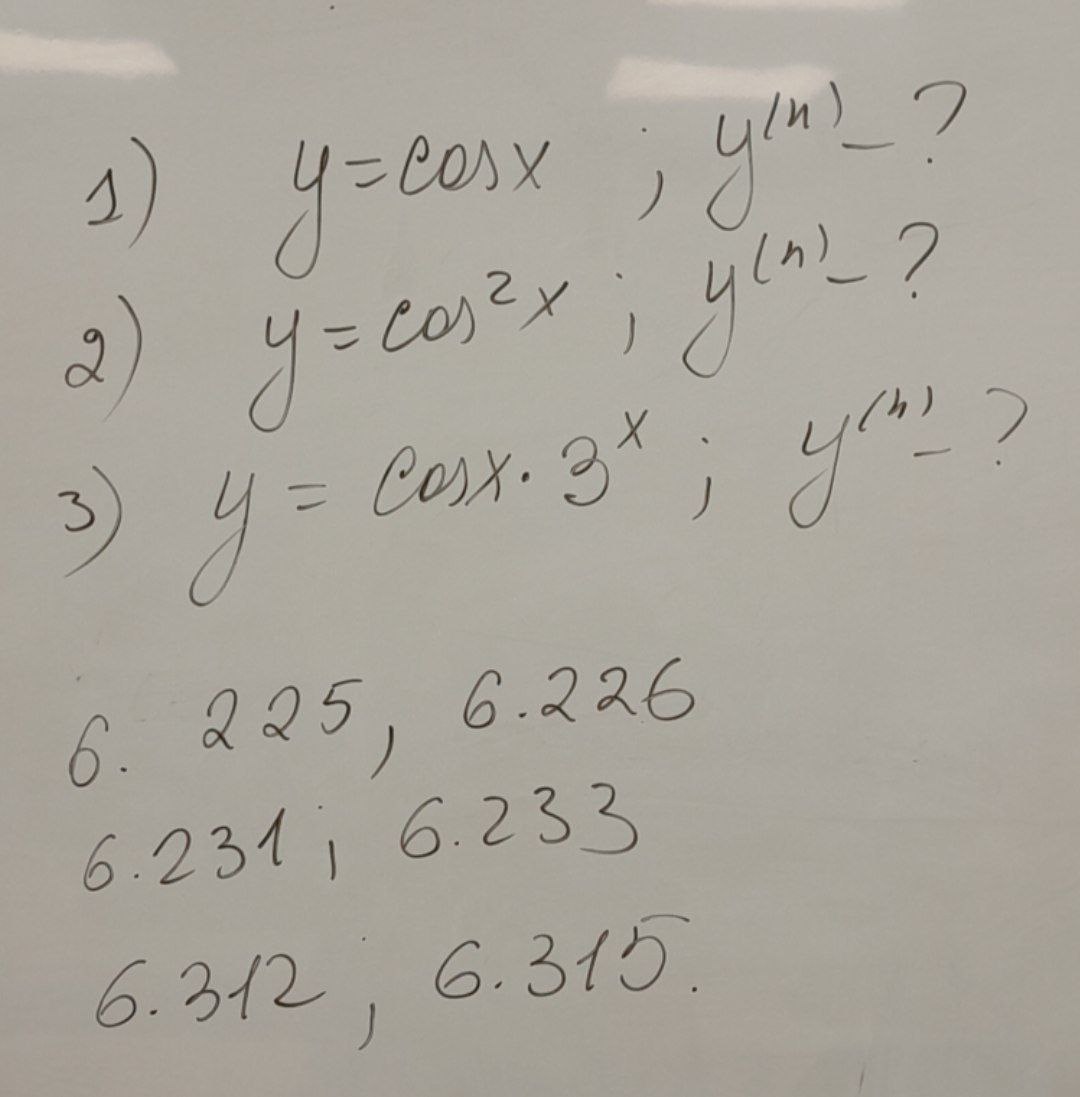 1) y=cosx ; y⁽ⁿ⁾-?
2) y=cos²x ; y⁽ⁿ⁾-?
3) y= cosx·3ˣ ; y⁽ⁿ⁾-?
6. 225, 6.226
6.231; 6.233
6.312; 6.315.